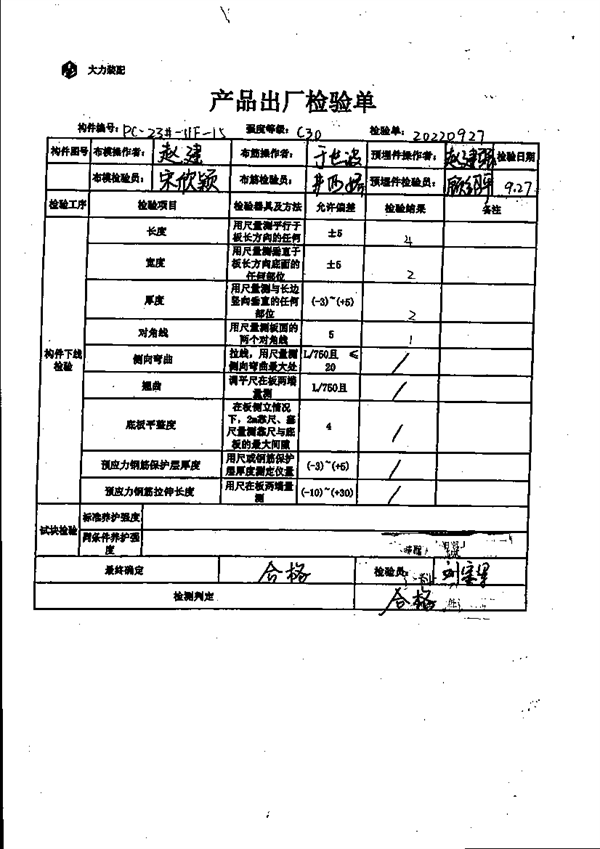 大力装配
产品出厂检验单
构件编号: PC-23#-11F-15 强度等级: C30 检验单: 20220927
构件图号 布模操作者: 赵建 布筋操作者: 预埋件操作者: 检验日期
布模检验员: 宋欣颖 布筋检验员: 预埋件检验员: 9.27
检验工序 检验项目 检验器具及方法 允许偏差 检验结果 备注
构件下线检验
长度 用尺量测平行于板长方向的任何 ±5 4
宽度 用尺量测垂直于板长方向底面的任何部位 ±5 2
厚度 用尺量测与长边竖向垂直的任何部位 (-3)~(+5) 2
对角线 用尺量测板面的两个对角线 5 1
侧向弯曲 拉线,用尺量测侧向弯曲最大处 L/750且 ≤20 /
翘曲 调平尺在板两端量测 L/750且 /
底板平整度 在板侧立情况下,2m靠尺、塞尺量测靠尺与底板的最大间隙 4 /
预应力钢筋保护层厚度 用尺或钢筋保护层厚度测定仪量 (-3)~(+5) /
预应力钢筋拉伸长度 用尺在板两端量测 (-10)~(+30) /
试块检验
标准养护强度
同条件养护强度
最终确定 合格 检验员:
检测判定 合格